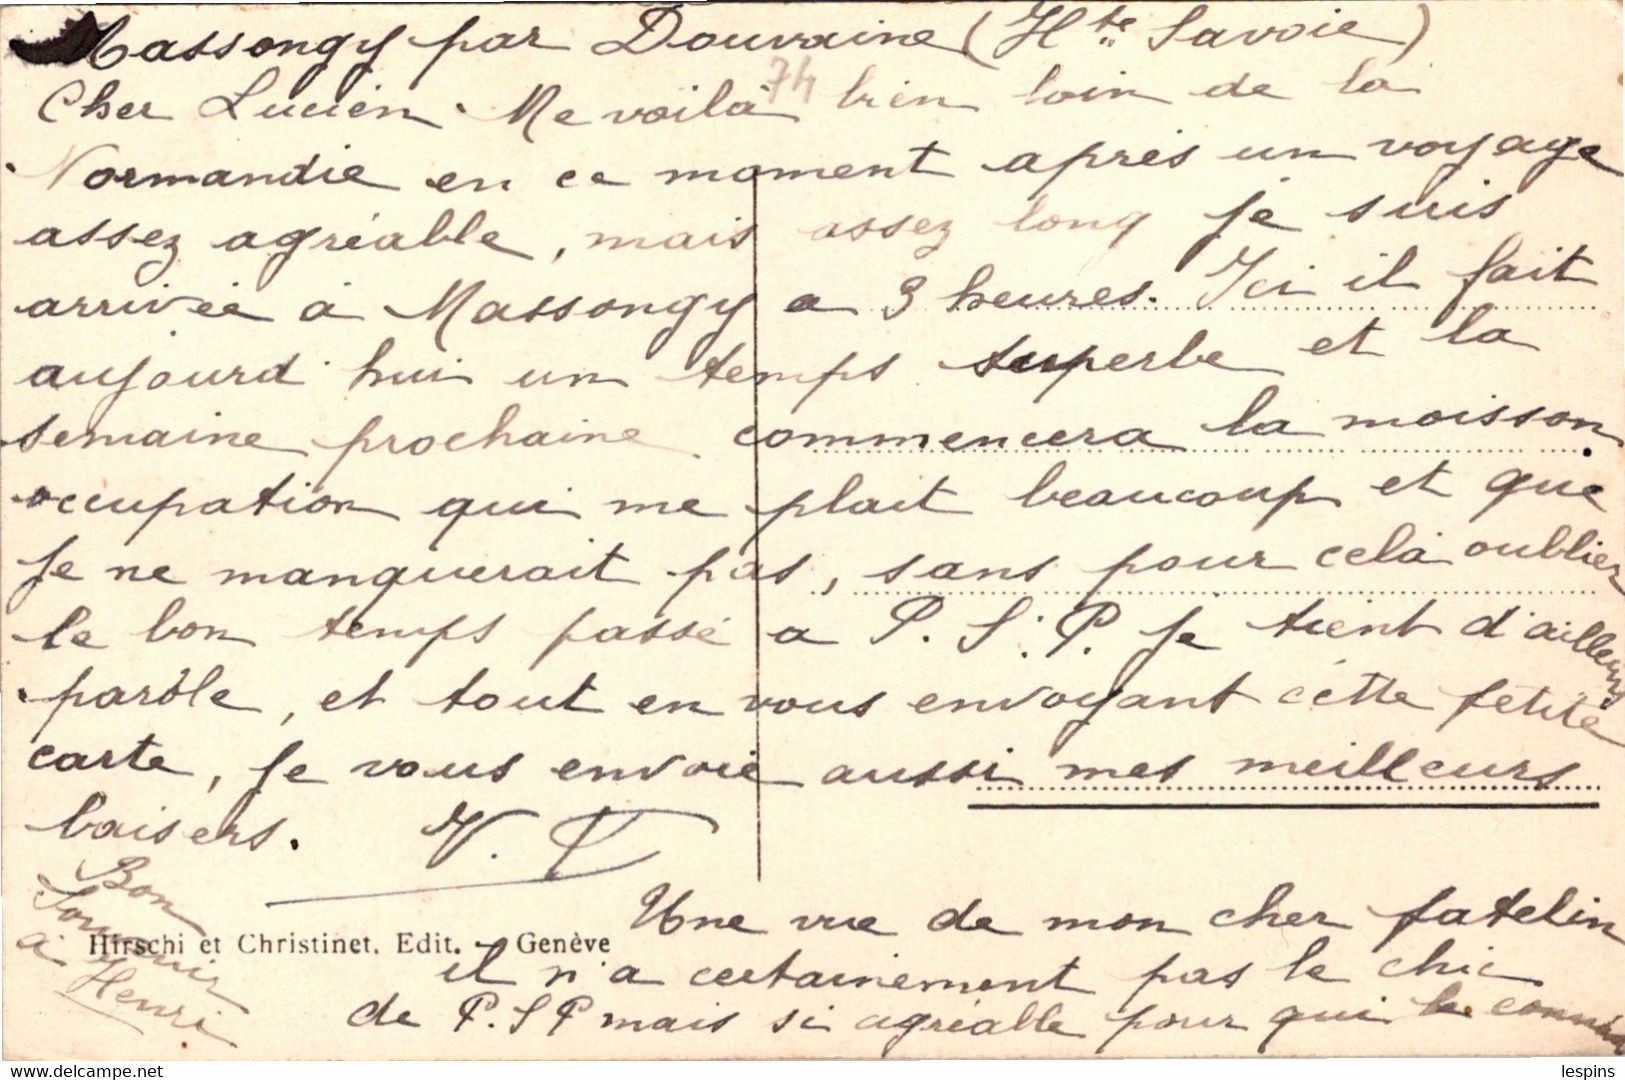 Massongy par Douvaine (Hte Savoie)
74
Cher Lucien. Me voilà bien loin de la
Normandie en ce moment après un voyage
assez agréable, mais assez long je suis
arrivée à Massongy a 3 heures. Ici il fait
aujourd'hui un temps superbe et la
semaine prochaine commencera la moisson.
occupation qui me plait beaucoup et que
je ne manquerait pas, sans pour celà oublier
le bon temps passé a P. S. P. je tient d'ailleurs
parôle, et tout en vous envoyant cette petite
carte, je vous envoie aussi mes meilleurs
baisers.
Bon
Souvenir
à Henri
Hirschi et Christinet. Edit. - Genève
Une vue de mon cher patelin
il n'a certainement pas le chic
de P. S P mais si agréable pour qui le connait